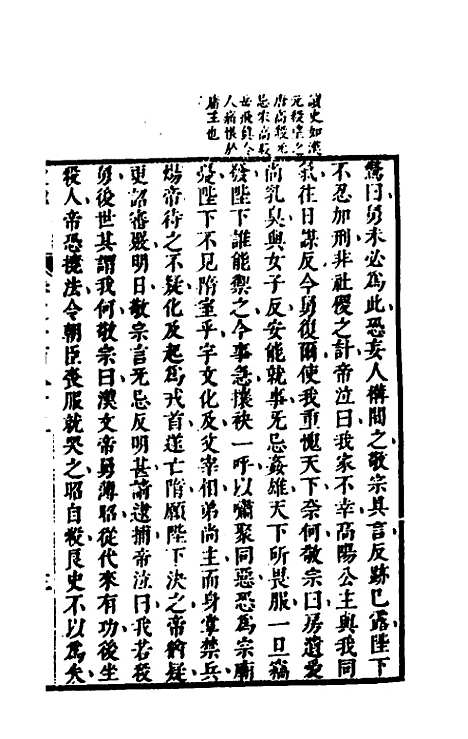 讀史如漢
元殺望之
唐高殺无
忌宋高殺
岳飛真令
人痛恨於
庸主也
驚曰舅未必爲此恐妄人構間之敬宗具言反跡已露陛下
不忍加刑非社稷之計帝泣曰我家不幸高陽公主與我同
氣往日謀反今舅復爾使我重愧天下奈何敬宗曰房遺愛
尚乳臭與女子反安能就事无忌姦雄天下所畏服一旦竊
發陛下誰能禦之今事急攘袂一呼以嘯聚同惡恐爲宗廟
憂陛下不見隋室乎宇文化及父宰相弟尚主而身掌禁兵
煬帝待之不疑化及起爲戎首遂亡隋願陛下決之帝猶疑
更詔審嚴明日敬宗言无忌反明甚請逮捕帝泣曰我若殺
舅後世其謂我何敬宗曰漢文帝舅薄昭從代來有功後坐
殺人帝恐撓法令朝臣喪服就哭之昭自殺良史不以爲失